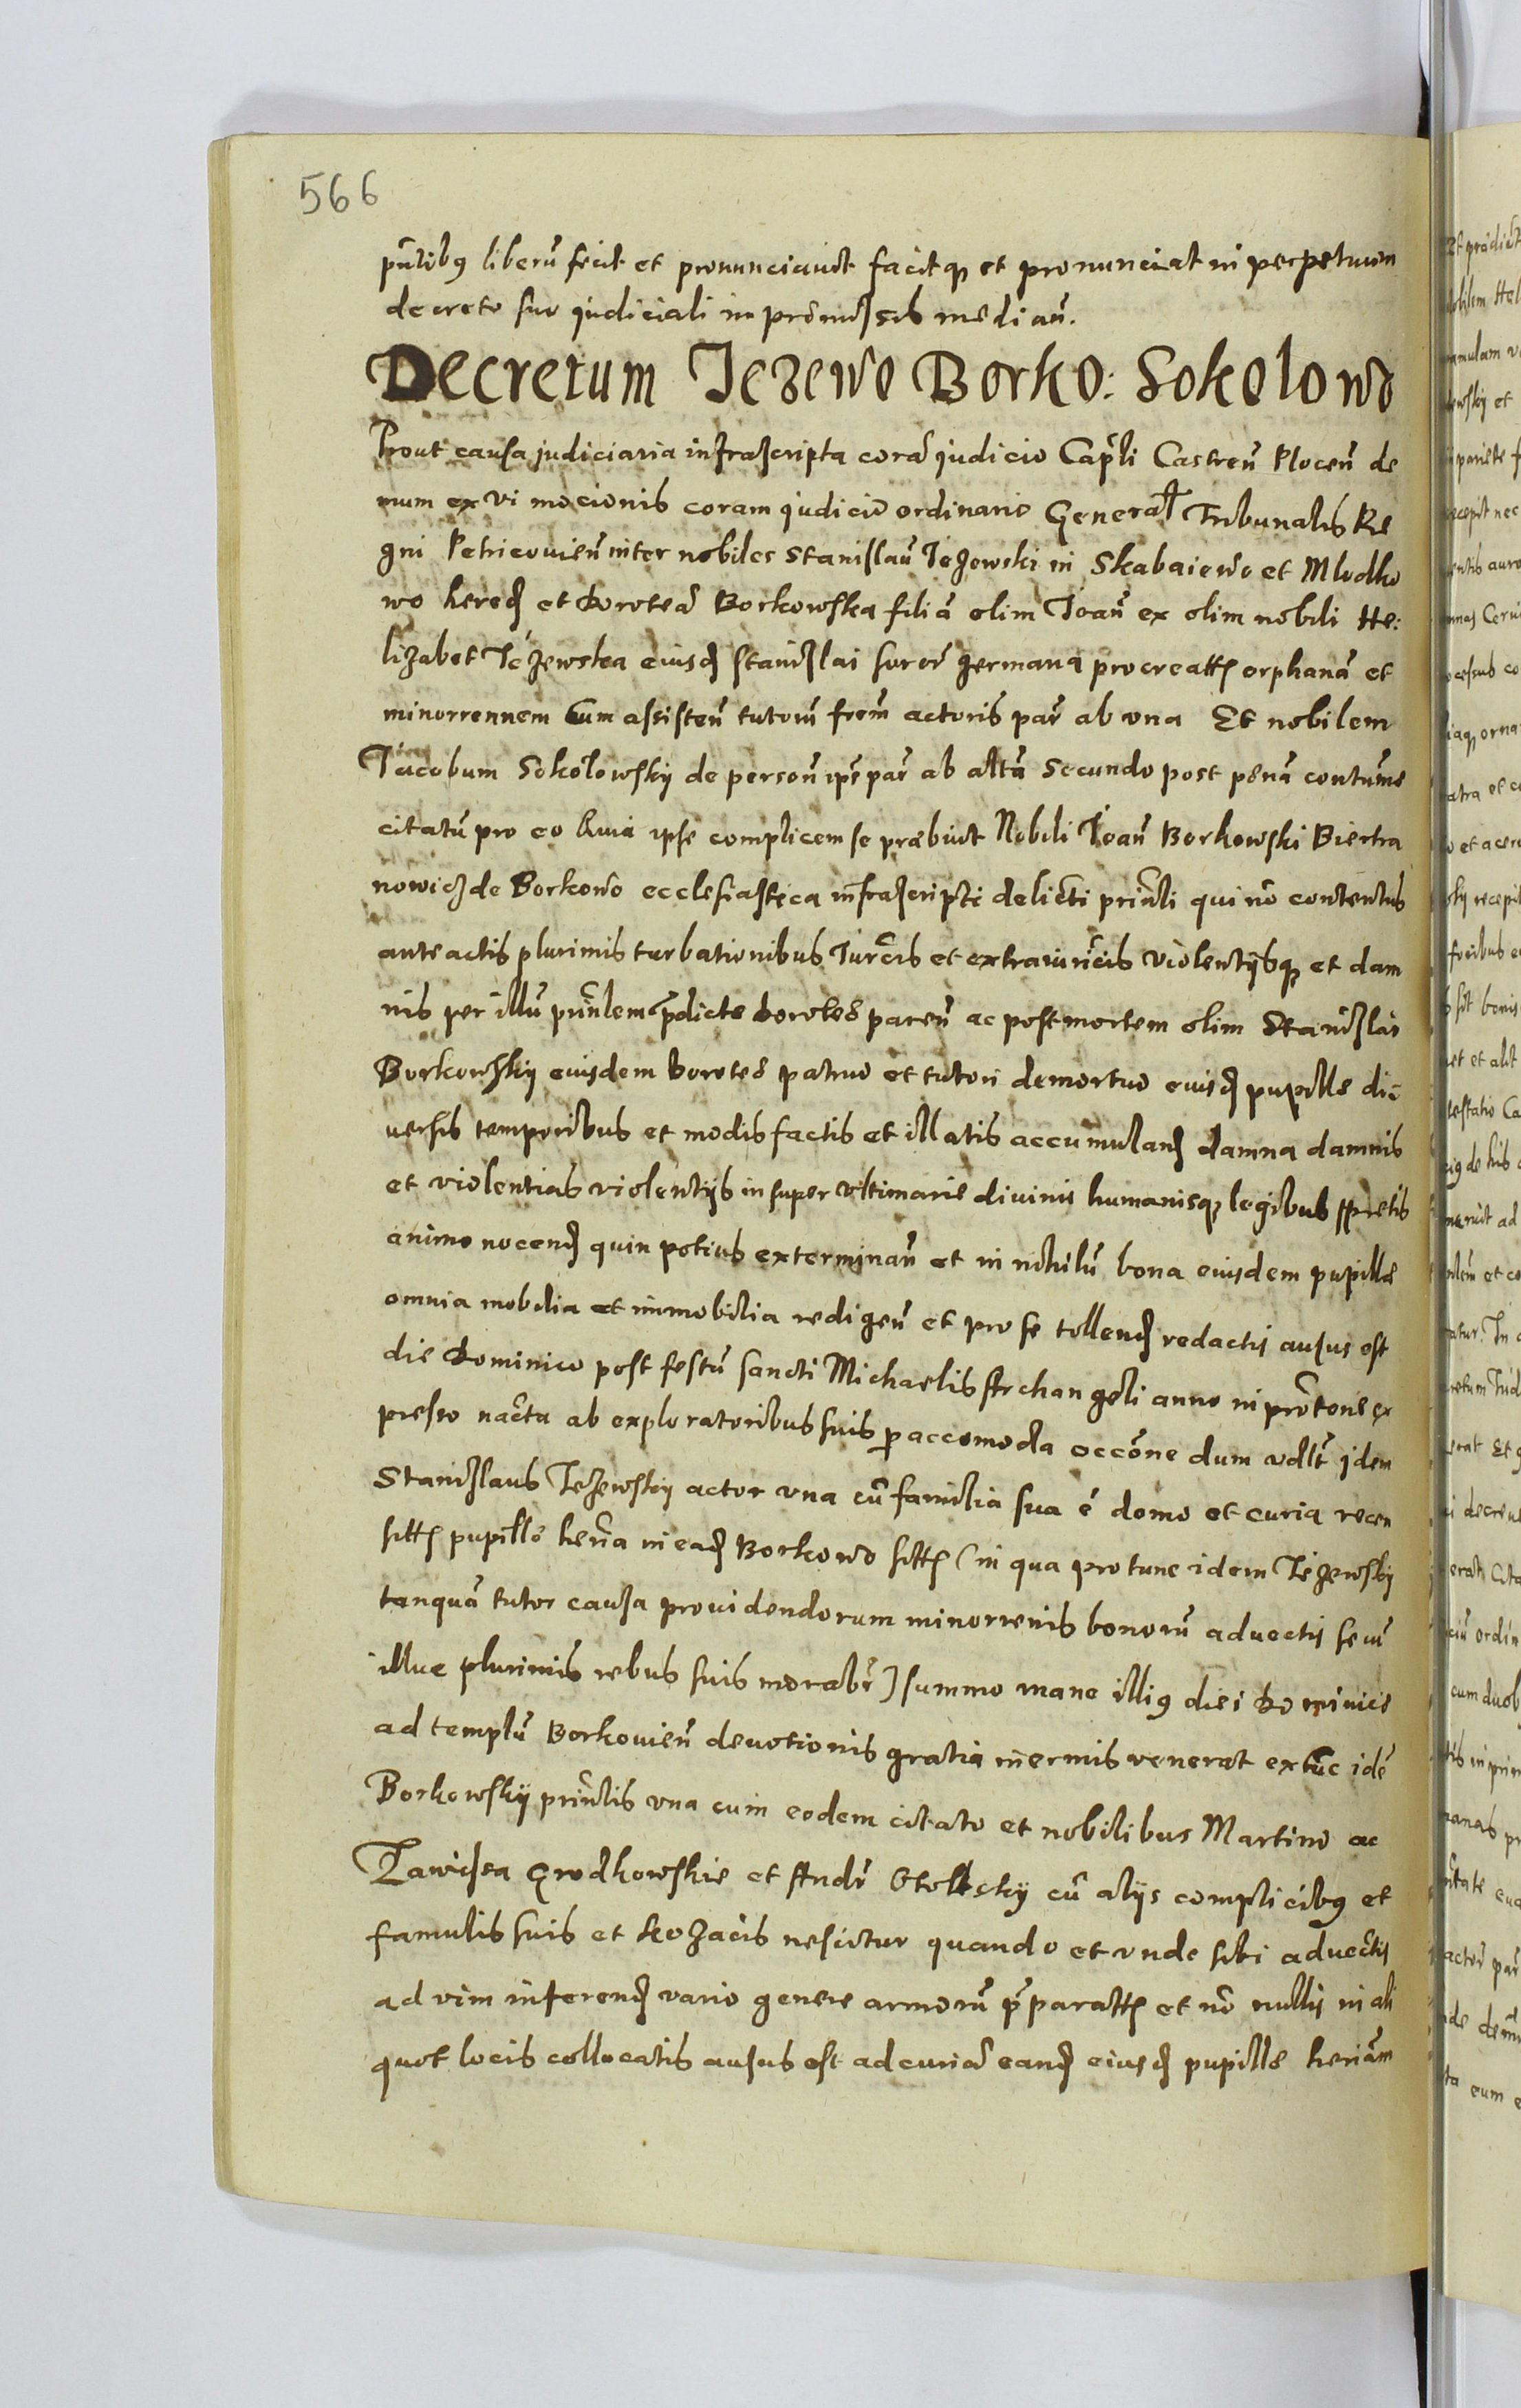 566
pn̄tibꝯ liberū fecit et pronunciavit facitqꝫ et pronunciat in perpetuum
decreto suo judiciali in præmissis median̄.
Decretum Jezewo Borko: Sokolowo
Prout causa judiciaria infrascripta corā judicio Cap̄li Castren̄ Plocen̄ de
mum ex vi mocionis coram judicio ordinario General Tribunalis Re
gni Petricovien̄ inter nobiles Stanislaū Jezewski in Skabaiewo et Mlodko
wo hered et Doroteā Borkowska filiā olim Joan̄ ex olim nobili He:
lizabet Jezewska eiusd Stanislai soror germana procreatt orphanā et
minorrennem cum assisten̄ tutorū frem̄ actoris par̄ ab una Et nobilem
Jacobum Sokolowsky de person̄ ips̄ par̄ ab altā Secundo post penā contume
citatū pro eo Quia ipse complicem se præbuit Nobili Joan̄ Borkowski Biertra
nowicz de Borkowo ecclesiastica infrascripti delicti prin̄li qui nō contentus
anteactis plurimis turbationibus Jur̄cis et extraiur̄cis violentijsqꝫ et dam
nis per illū prin̄lem p̄dicte Dorotee paren̄ ac post mortem olim Stanislai
Borkowsky eiusdem Dorotee patruo et tutori demortuo eiusd pupille di
versis temporibus et modis factis et illatis accumuland damna damnis
et violentias violentijs insuper ultimarie divinis humanisqꝫ legibus spretis
animo nocend quin potius exterminan̄ et in nihilū bona eiusdem pupille
omnia mobilia et immobilia redigen̄ et pro se tollend redactis ausus est
die Dominico post festū sancti Michaelis Archangeli anno in pro͞tone ex
presso nacta ab exploratoribus suis peraccomoda occōne dum vdlt idem
Stanislaus Jezewsky actor una cū familia sua é domo et curia recen
sitt pupille her̄na in ead Borkowo sitt (in qua pro tunc idem Jezewsky
tanquā tutor causa providendorum minorrenis bonorū advectis secū
illuc plurimis rebus suis morabr̄) summo mane illiꝯ diei Dominici
ad templū Borkovien̄ devotionis gratia inermis venerat extūc idē
Borkowsky prin̄lis una cum eodem citato et nobilibus Martino ac
Zawisza Grodkowskie et Andr̄ Otolsky cū alijs complicibꝯ et
famulis suis et kozacis nescitur quando et unde sibi advectis
ad vim inferend vario genere armorū p̄paratt et nō nullis in ali
quot locis collocatis ausus est ad curiā eand eiusd pupille heriām